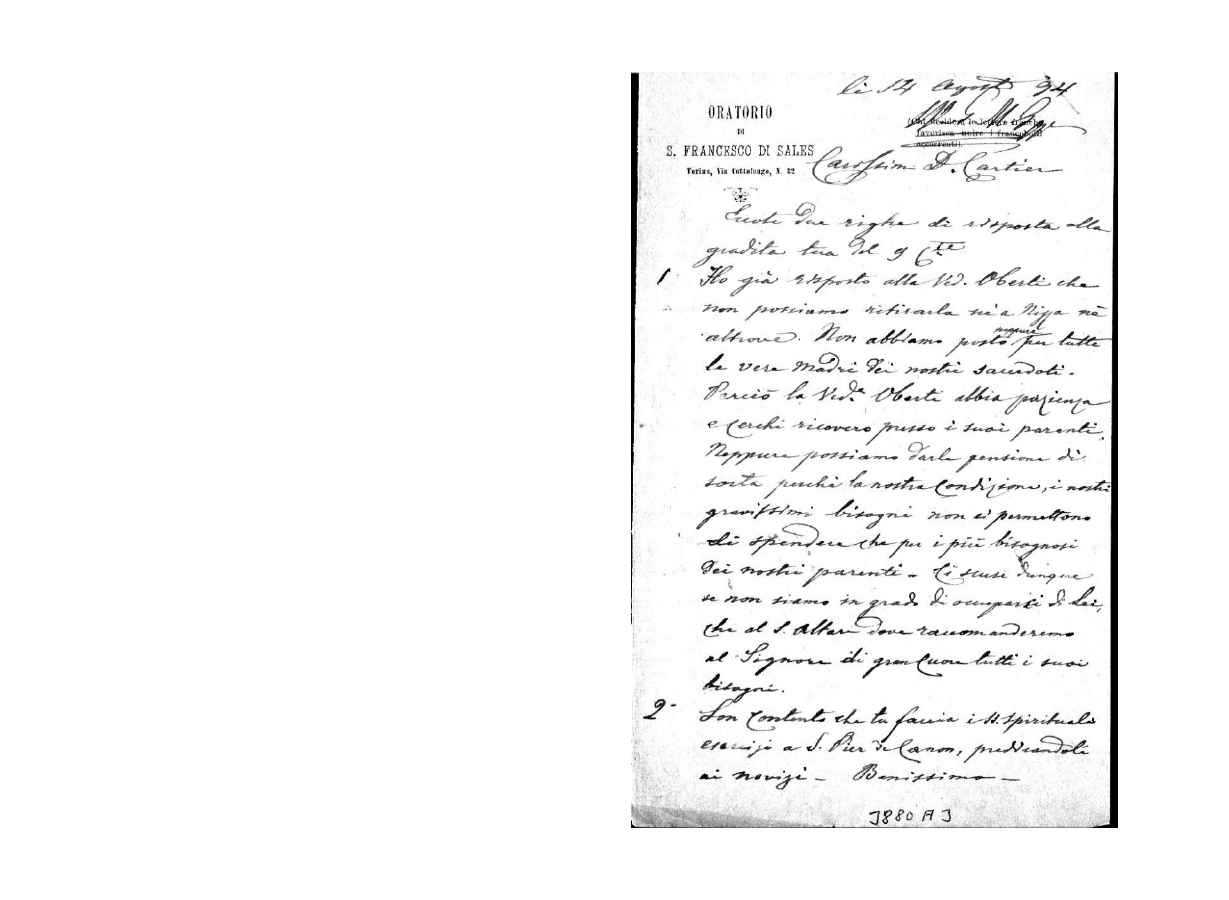 li 14 Agosto 94
ORATORIO
DI
S. FRANCESCO DI SALES
Torino, Via Cottolengo, N. 32
(Chi desidera lo lettere franche
favorisca unire i francobolli
occorrenti).
Carissim D. Cartier
Eccoti due righe di risposta alla
gradita tua del 9 Cte
1 Ho già risposto alla Ved. Oberti che
non possiamo ritirarla nè a Nizza nè
altrove. Non abbiamo posto neppure per tutte
le vere Madri dei nostri sacerdoti.
Perciò la Ved.a Oberti abbia pazienza
e cerchi ricovero presso i suoi parenti.
Neppure possiamo darle pensione di
sorta perchè la nostra Condizione, i nostri
gravissimi bisogni non ci permettono
di spendere che per i più bisognosi
dei nostri parenti - Ci scusi dunque
se non siamo in grado di occuparci di Lei,
che al S. Altare dove raccomanderemo
al Signore di gran Cuore tutti i suoi
bisogni.
2° Son Contento che tu faccia i SS. Spirituali
esercizi a S. Pier de Canon, predicandoli
ai novizi - Benissimo -
3880 A 3